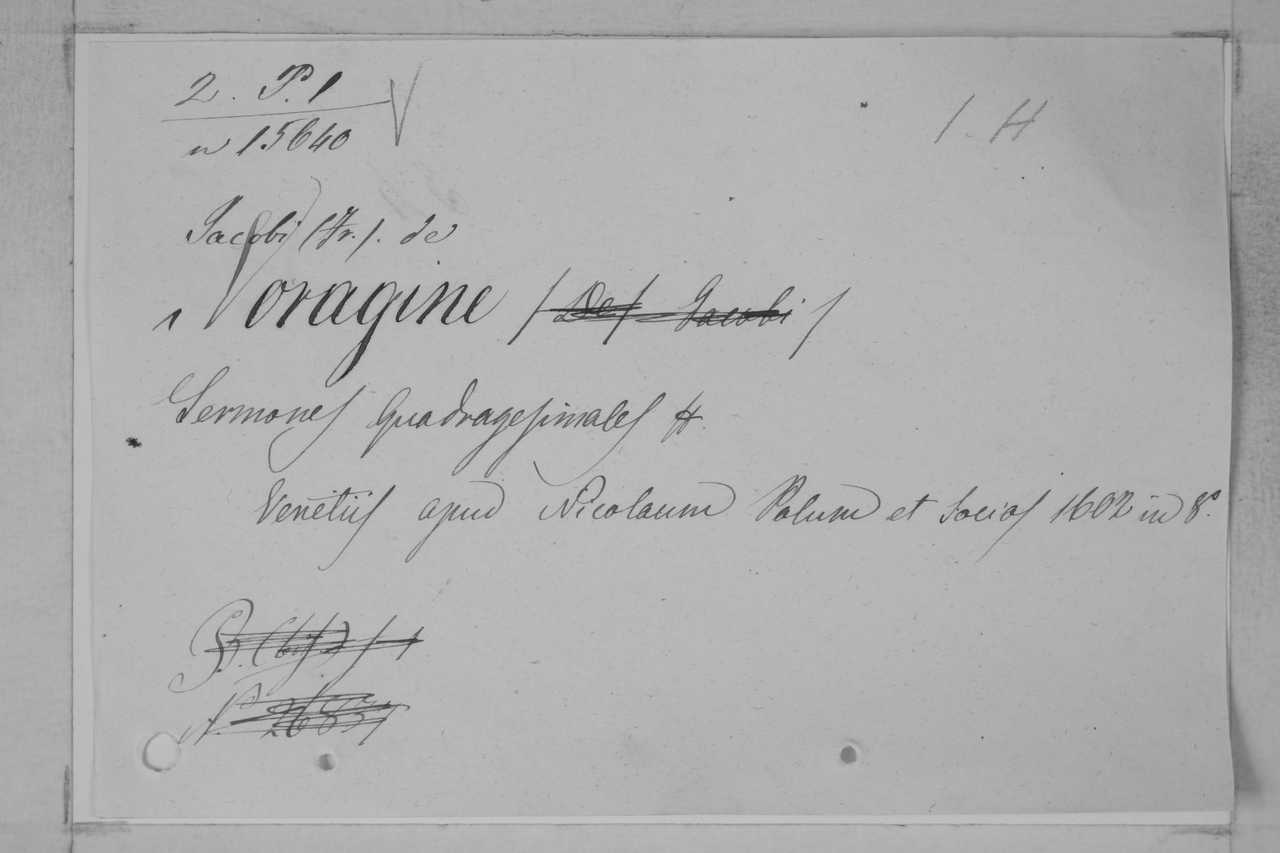 2. P. 1 V
n 15640
1. H
Jacobi (Fr.). de
Voragine (De) Jacobi)
Sermones Quadragesimales &.
Venetiis apud Nicolaum Polum et Socios 1602 in 8°.
N.